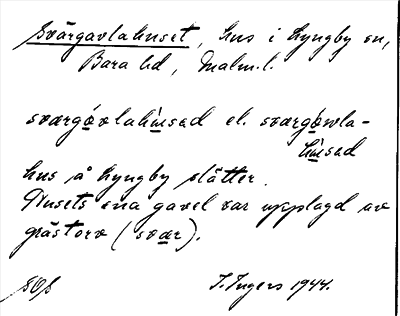 Svärgavlahuset, hus i Lyngby sn,
Bara hd, Malm. l.
svargóvlahu̇sed el. svargówla-
hu̇sed
hus å Lyngby slätter.
Husets ena gavel var upplagd av
grästorv (svar).
I. Ingers 1944.